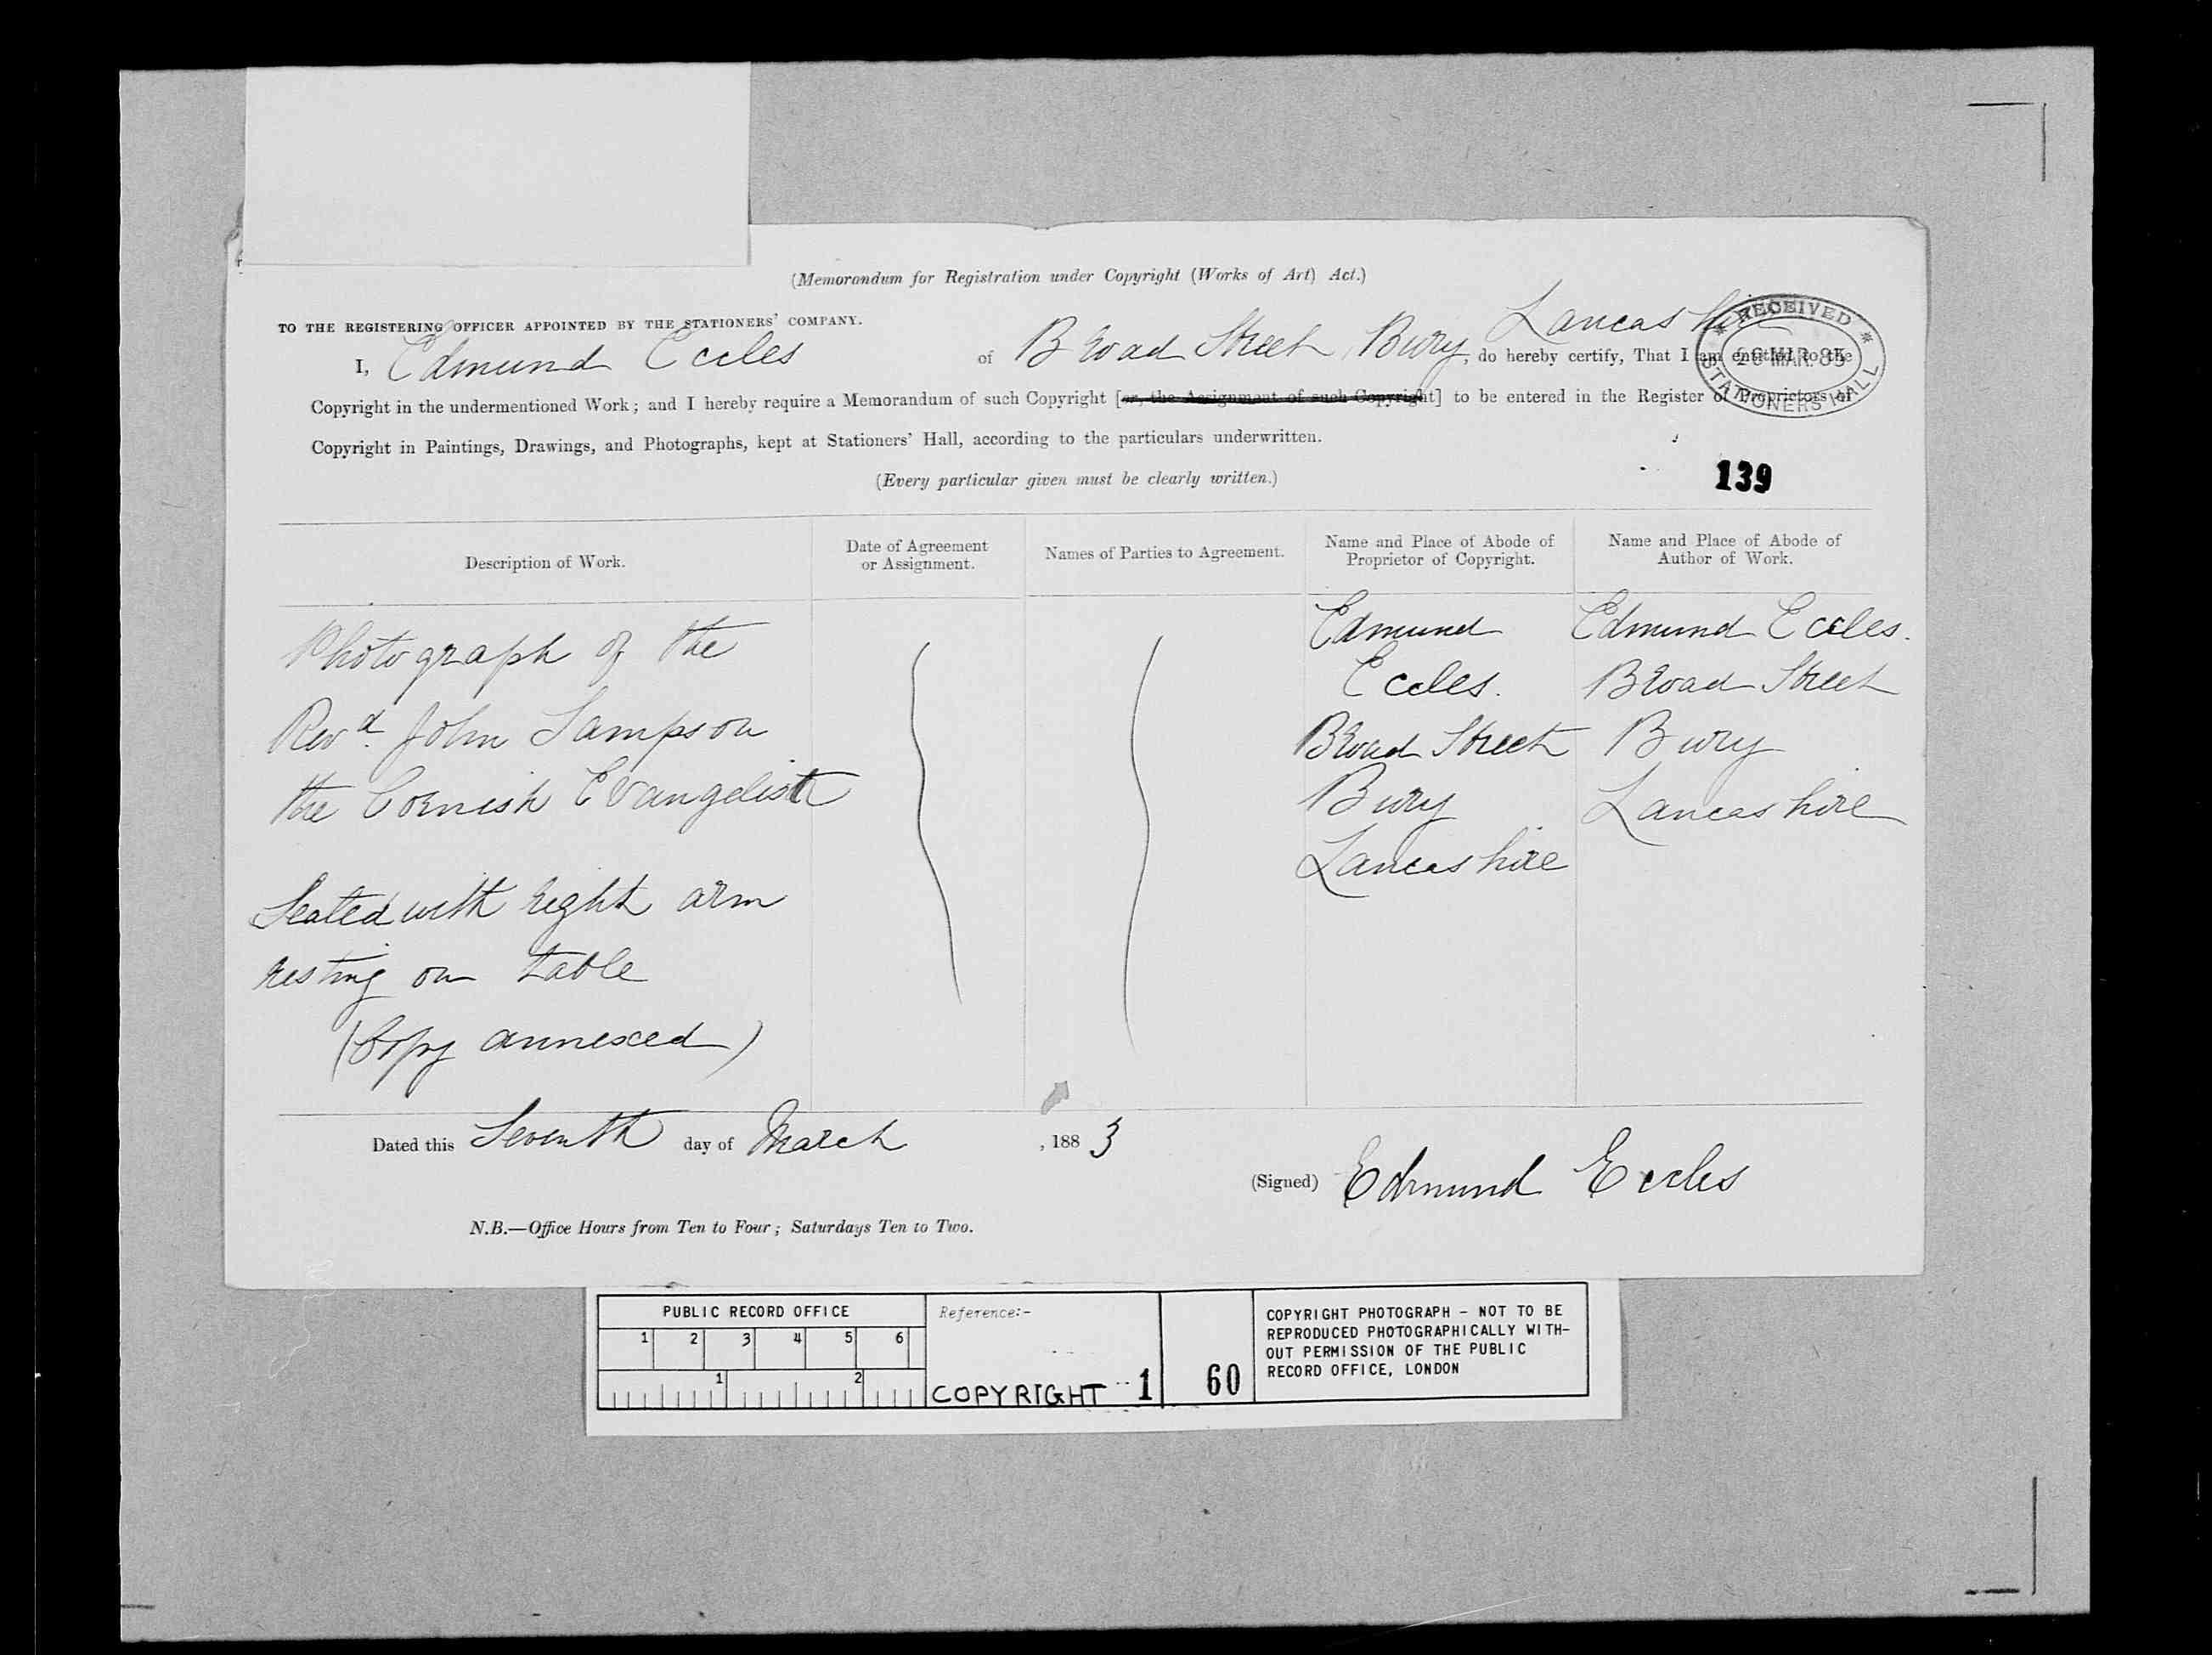 (Memorandum for Registration under Copyright (Works of Art) Act.)
TO THE REGISTERING OFFICER APPOINTED BY THE STATIONERS' COMPANY.
I, Edmund Eccles of Broad Street, Bury, Lancashire do hereby certify, That I am entitled to the
Copyright in the undermentioned Work; and I hereby require a Memorandum of such Copyright [or, the Assignment of such Copyright] to be entered in the Register of Proprietors of
Copyright in Paintings, Drawings, and Photographs, kept at Stationers' Hall, according to the particulars underwritten.
RECEIVED
26 MAR. 83
STATIONERS HALL
(Every particular given must be clearly written.)
139
Description of Work.
Date of Agreement
or Assignment.
Names of Parties to Agreement.
Name and Place of Abode of
Proprietor of Copyright.
Name and Place of Abode of
Author of Work.
Photograph of the
Revd. John Sampson
the Cornish Evangelist
Seated with right arm
resting on table
(Copy annexed)
Edmund
Eccles.
Broad Street
Bury
Lancashire
Edmund Eccles.
Broad Street
Bury
Lancashire
Dated this Seventh day of March , 1883
(Signed) Edmund Eccles
N.B.—Office Hours from Ten to Four; Saturdays Ten to Two.
PUBLIC RECORD OFFICE
1 2 3 4 5 6
1 2
Reference:-
COPYRIGHT 1
60
COPYRIGHT PHOTOGRAPH - NOT TO BE
REPRODUCED PHOTOGRAPHICALLY WITH-
OUT PERMISSION OF THE PUBLIC
RECORD OFFICE, LONDON